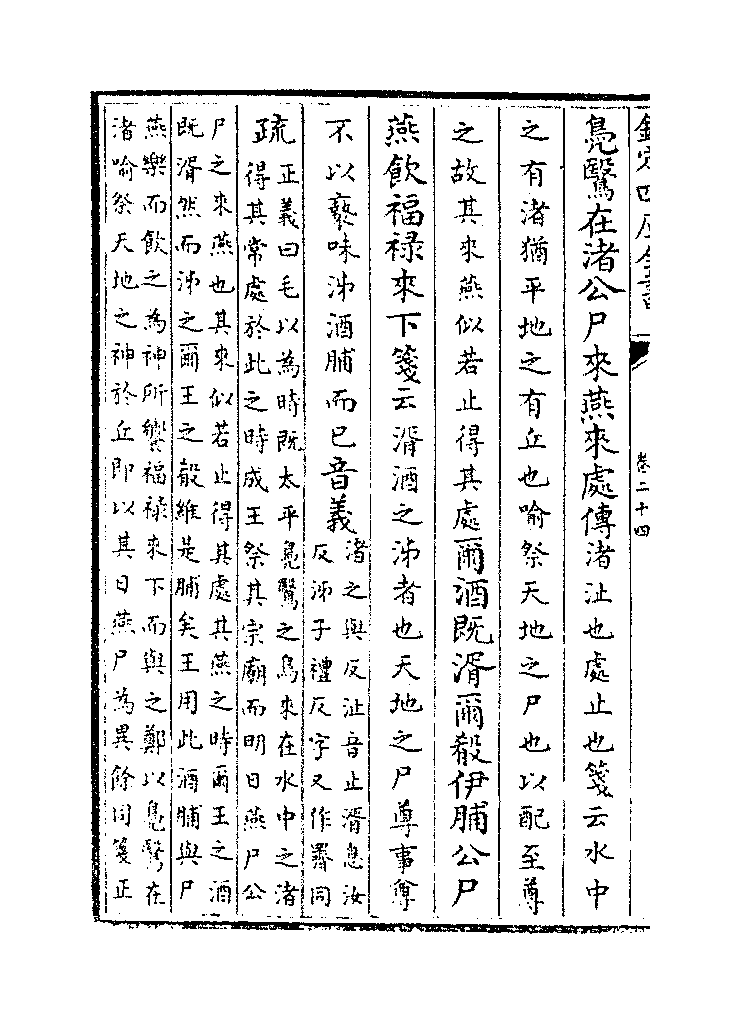 欽定四庫全書
卷二十四
鳧鷖在渚公尸來燕來處傳渚沚也處止也箋云水中
之有渚猶平地之有丘也喻祭天地之尸也以配至尊
之故其來燕似若止得其處爾酒既湑爾殽伊脯公尸
燕飲福祿來下箋云湑酒之泲者也天地之尸尊事尊
不以褻味泲酒脯而已音義渚之與反沚音止湑息汝
反泲子禮反字又作𪗋同
疏正義曰毛以為時既太平鳧鷖之鳥來在水中之渚
得其常處於此之時成王祭其宗廟而明日燕尸公
尸之來燕也其來似若止得其處其燕之時爾王之酒
既湑然而泲之爾王之殽維是脯矣王用此酒脯與尸
燕樂而飲之為神所饗福祿來下而與之鄭以鳧鷖在
渚喻祭天地之神於丘即以其日燕尸為異餘同箋正